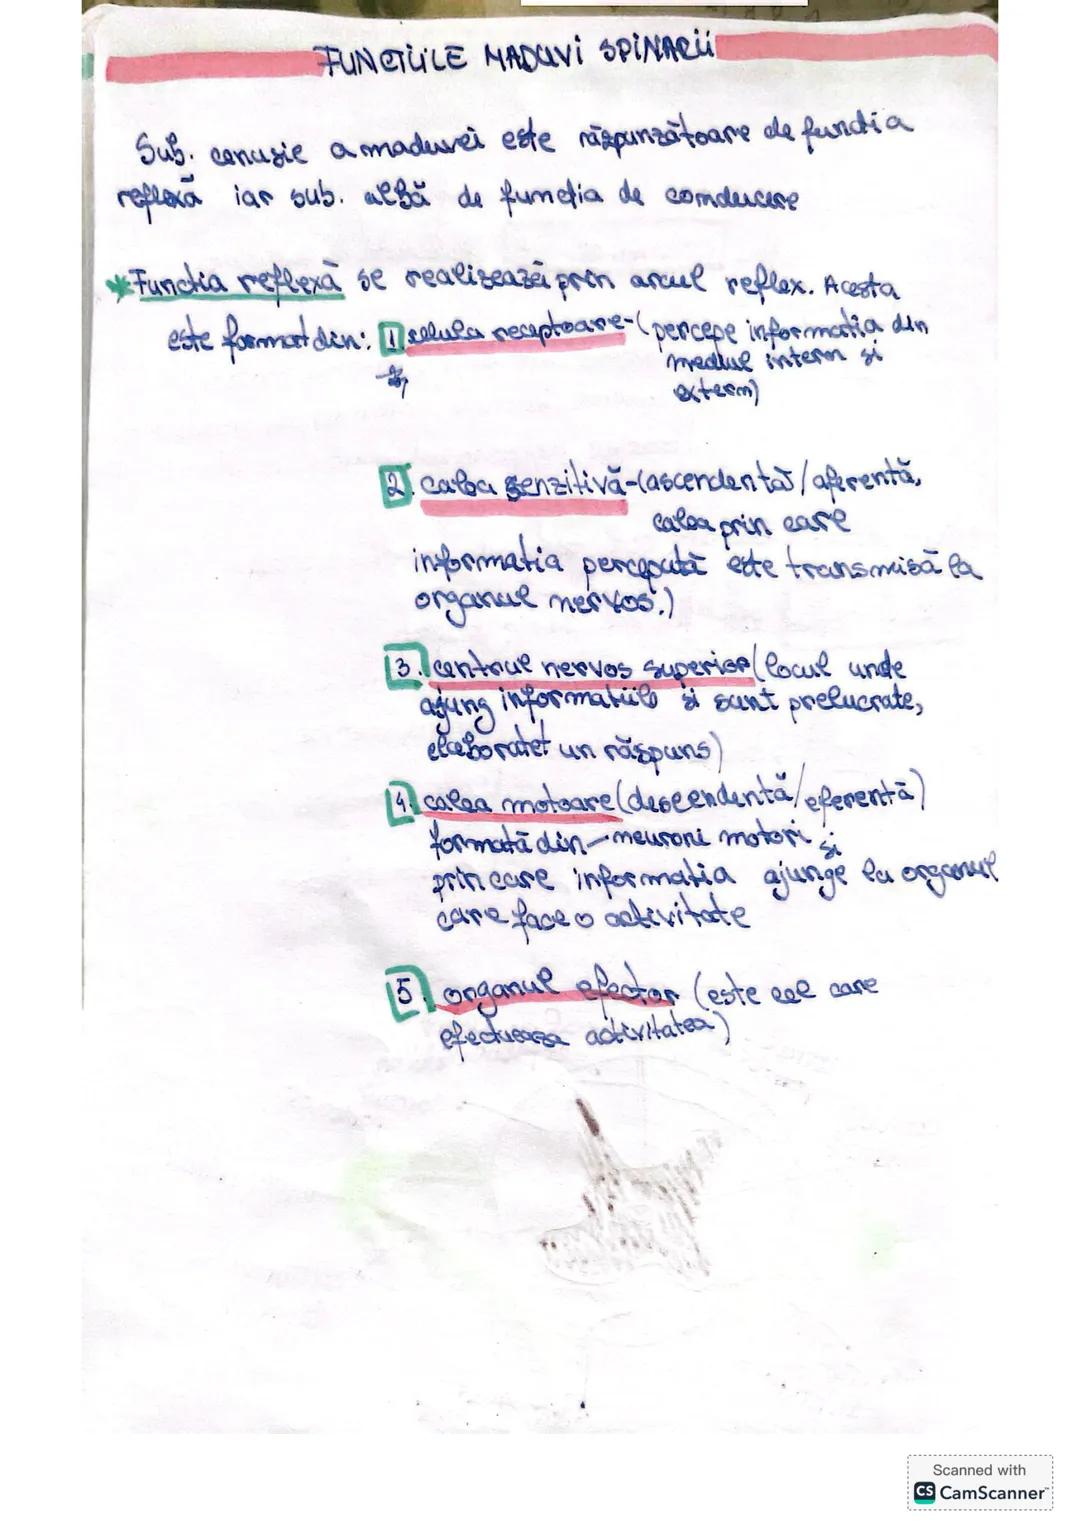 FUNCTIILE MADUVI SPINARII
Sub. cenusie a maduvei este răspunzătoare de functia
reflexă iar sub. albă de functia de conducere
*Functia reflexă se realizează prin arcul reflex. Acesta
este format din: 1. celula receptoare-(percepe informatia din
mediul intern si
extern)
2. calea senzitivă-(ascendentă/aferentă,
calea prin care
informatia percepută este transmisă la
organul nervos.)
3. centrul nervos superior(locul unde
ajung informatiile si sunt prelucrate,
elaboratet un răspuns)
4. calea motoare(descendentă/eferentă)
formată din-neuroni motori si
prin care informatia ajunge la organul
care face o activitate
5. organul efector (este cel care
efectueaza activitatea)
Scanned with
CS CamScanner